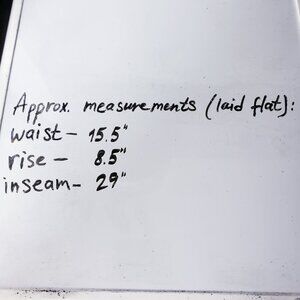 Approx. measurements (laid flat):
waist – 15.5"
rise – 8.5"
inseam – 29"